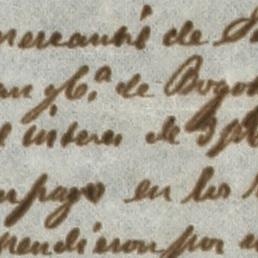 mercantil de
an y C.ª de Bogot
l interes de 3 p%
n pago en los
pendieron por